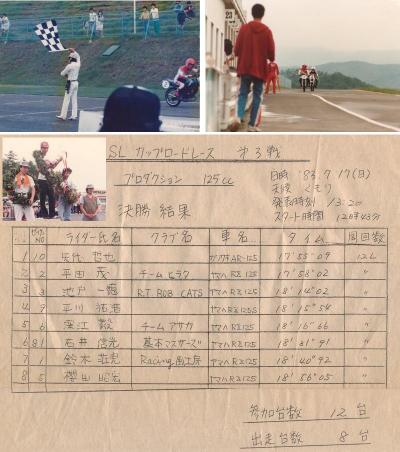 23
SL カップロードレース 第3戦
プロダクション 125cc
日時 '83.7.17(日)
天候 くもり
発表時刻 13:20
スタート時間 12時43分
決勝 結果
NO ライダー氏名 クラブ名 車名 タイム 周回数
1 10 矢代 哲也 カワサキAR-125 17'55"09 12L
2 2 平田 茂 チーム ヒラタ ヤマハRZ125 17'56"02 "
3 3 池戸 R.T. BOB CATS ヤマハRZ125 18'14"02 "
4 9 平川 ヤマハRZ125 18'15"54 "
5 6 深江 毅 チーム アサカ ヤマハRZ125 18'16"66 "
6 81 石井 信光 基本マスターズ ヤマハRZ125 18'31"91 "
7 1 鈴木 Racing ヤマハRZ125 18'40"92 "
8 5 櫻田 昭宏 ヤマハRZ125 18'56"05 "
参加台数 12台
出走台数 8台